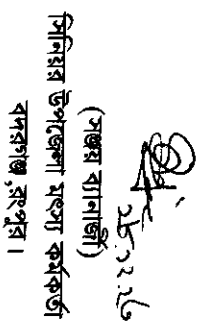 ২৮.১২.২৬
(সঞ্জয় ব্যানার্জী)
সিনিয়র উপজেলা মৎস্য কর্মকর্তা
বদরগঞ্জ, রংপুর।